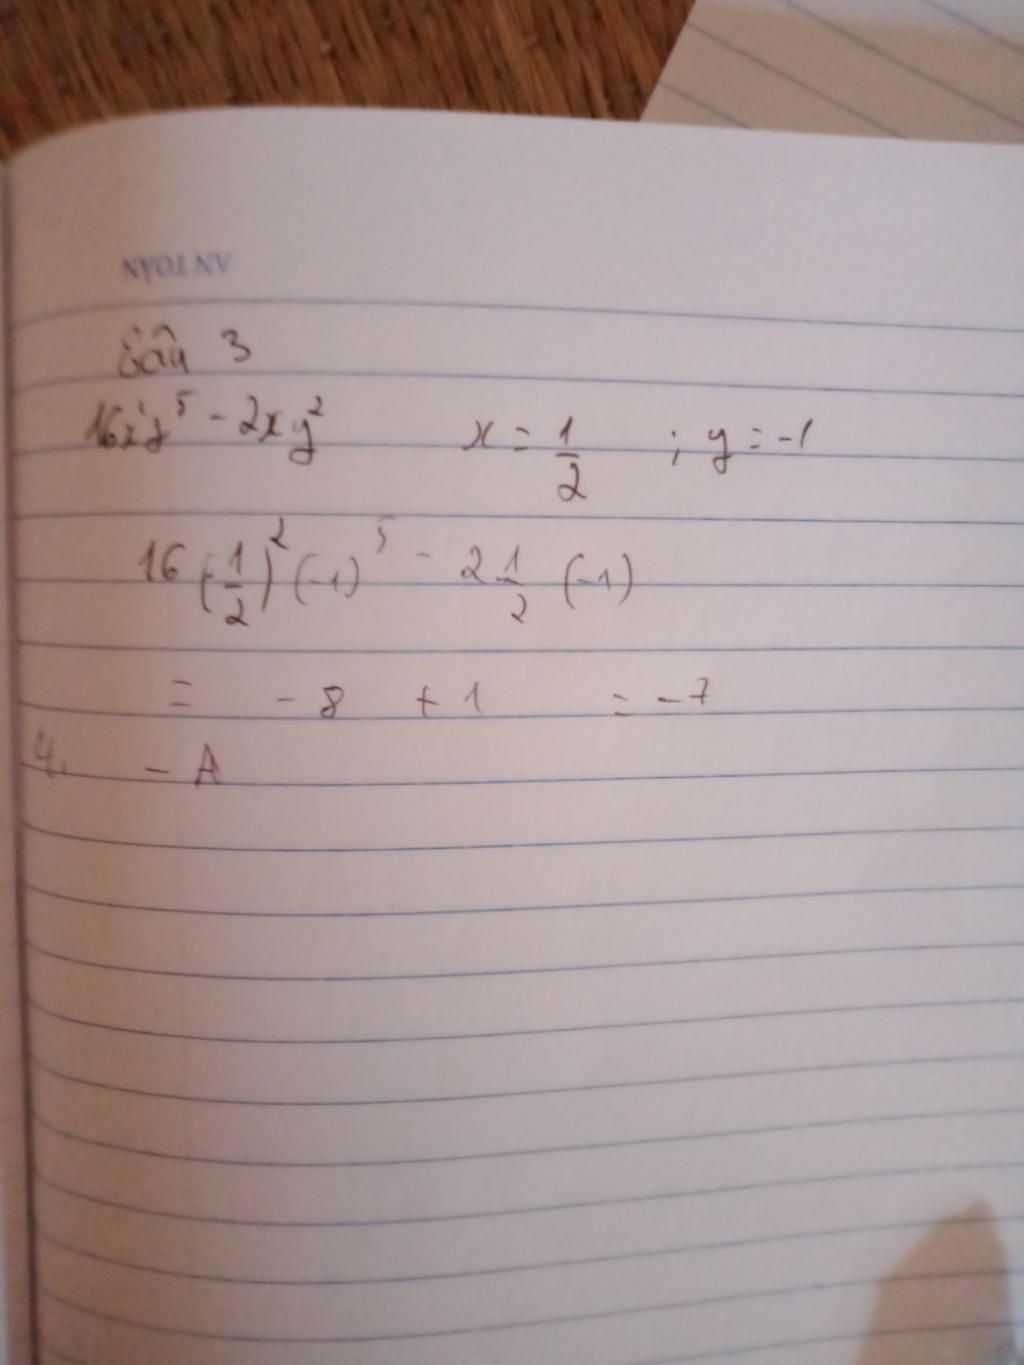 Câu 3
16x²y⁵ - 2xy² x = 1/2 ; y = -1
16 (1/2)² (-1)⁵ - 2 1/2 (-1)
= - 8 + 1 = -7
4. - A